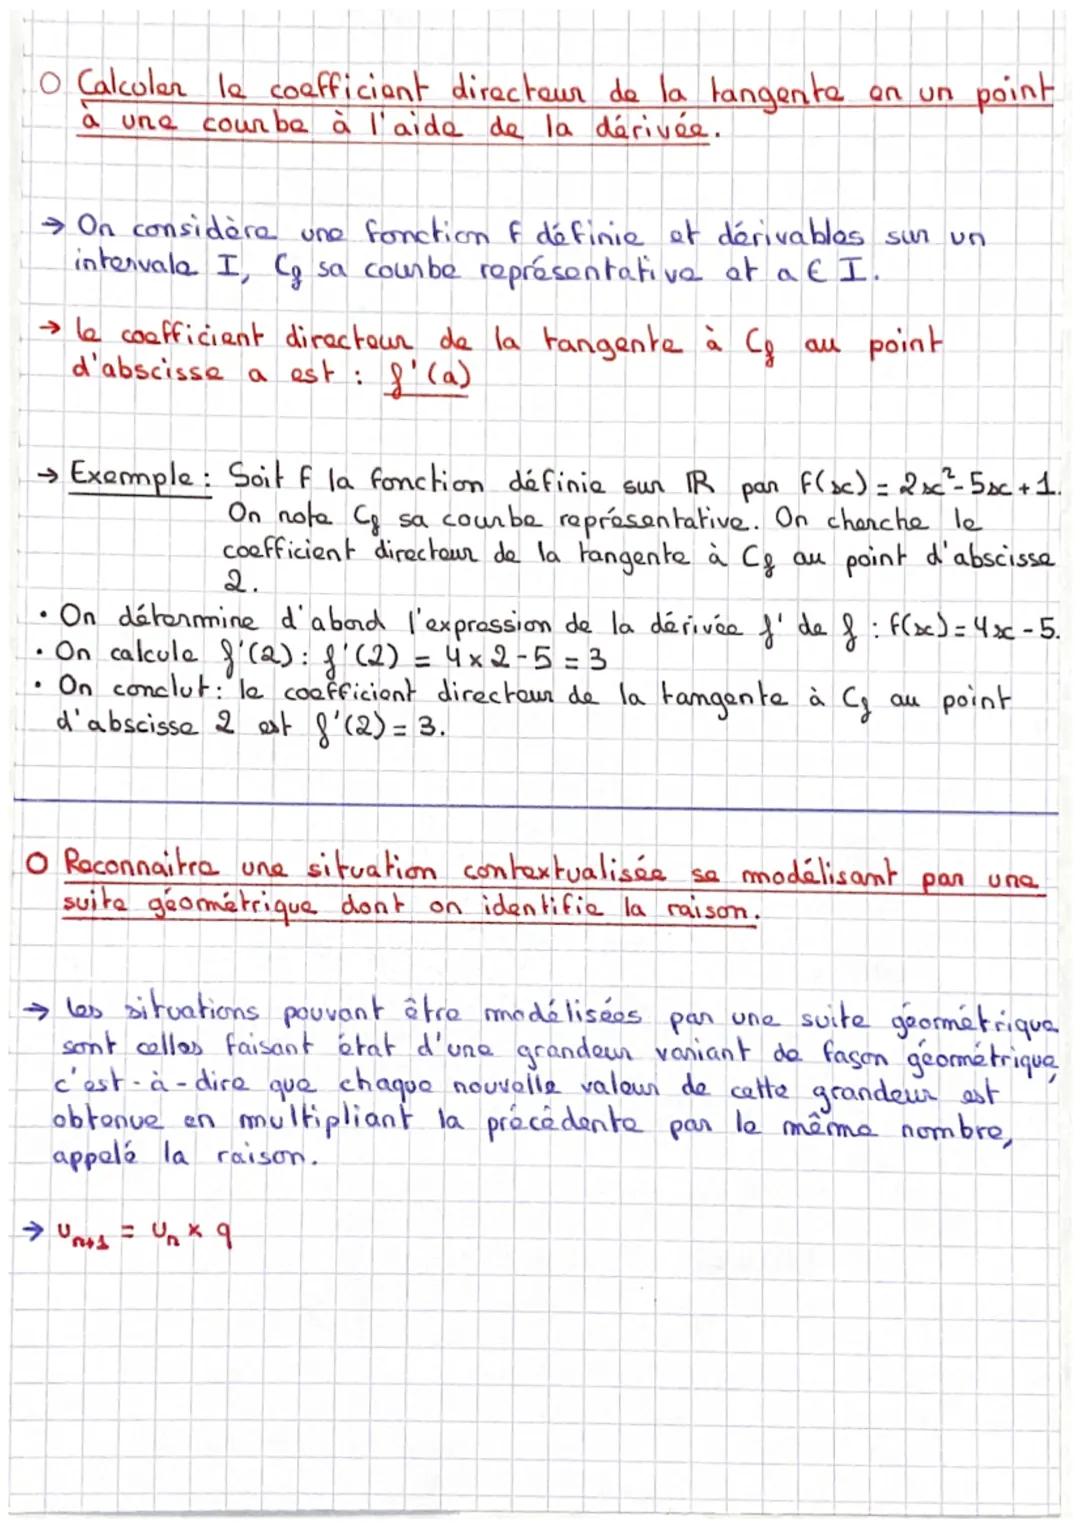 ○ Calculer le coefficient directeur de la tangente en un point
à une courbe à l'aide de la dérivée.
→ On considère une fonction f définie et dérivables sur un
intervale I, Cf sa courbe représentative et a ∈ I.
→ le coefficient directeur de la tangente à Cf au point
d'abscisse a est : f'(a)
→ Exemple : Soit f la fonction définie sur ℝ par f(x) = 2x²-5x+1.
On note Cf sa courbe représentative. On cherche le
coefficient directeur de la tangente à Cf au point d'abscisse
2.
• On détermine d'abord l'expression de la dérivée f' de f : f(x) = 4x-5.
• On calcule f'(2) : f'(2) = 4×2-5 = 3
• On conclut : le coefficient directeur de la tangente à Cf au point
d'abscisse 2 est f'(2) = 3.
○ Reconnaitre une situation contextualisée se modélisant par une
suite géométrique dont on identifie la raison.
→ les situations pouvant être modélisées par une suite géométrique
sont celles faisant état d'une grandeur variant de façon géométrique,
c'est-à-dire que chaque nouvelle valeur de cette grandeur est
obtenue en multipliant la précédente par le même nombre,
appelé la raison.
→ Uₙ₊₁ = Uₙ × q